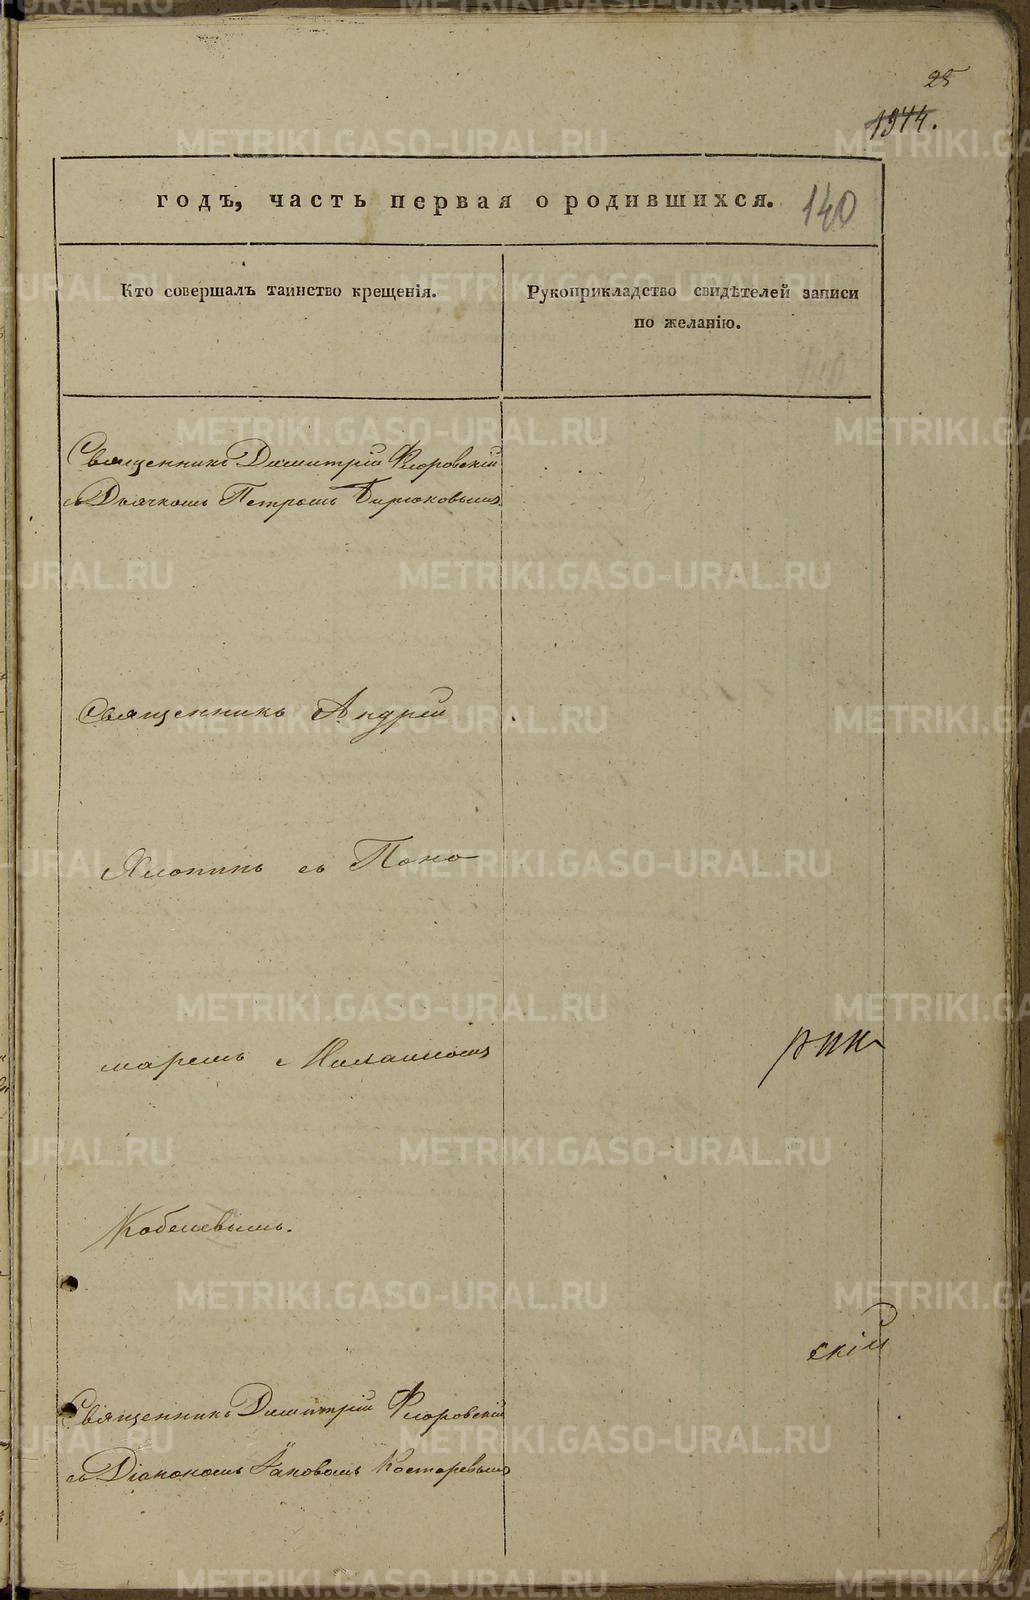 25
1944.
годъ, часть первая о родившихся. 140
Кто совершалъ таинство крещенія.
Рукоприкладство свидѣтелей записи
по желанію.
Священникъ Димитрій Флоровскій
съ Дьячкомъ Петромъ Бирюковымъ.
Священникъ Андрей
Хлопинъ съ Поно
маремъ Михаиломъ
Кобелевымъ.
скій
Священникъ Димитрій Флоровскій
съ Діакономъ Іаковомъ Костаревымъ
METRIKI.GASO-URAL.RU